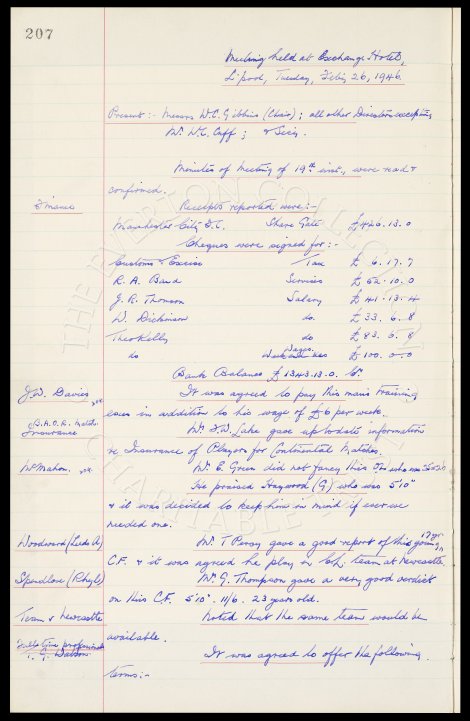 207
Meeting held at Exchange Hotel,
L'pool, Tuesday, Feb'y 26, 1946.
Present :- Messrs W.C. Gibbins (Chair); all other Directors excepting
Mr W.C. Cuff; & Secy.
Minutes of Meeting of 19th inst., were read &
confirmed.
Finance Receipts reported were:-
Manchester City F.C. Share Gate £426.13.0
Cheques were signed for :-
Customs & Excise Tax £ 6.17.7
R.A. Band Services £ 52.10.0
J.R. Thomson Salary £ 41.13.4
W. Dickinson do. £ 33.6.8
Theo Kelly do £ 83.6.8
do Wages £ 100.0.0
Bank Balance £ 1343.13.0. Cr.
J.W. Davies It was agreed to pay this man's training
in addition to his wage of £6 per week.
B.A.O.R. match Insurance Mr Lake gave up-to-date information
re Insurance of Players for Continental Matches.
McMahon. Mr E. Green did not fancy this who was
He praised Haywood (G) who was 5'10"
& it was decided to keep him in mind if ever we
needed one.
Woodward (Leeds A) Mr. T Percy gave a good report of this 17 yr
C.F. & it was agreed he play in team at Newcastle.
Spendlove (Rhyl) Mr. G. Thompson gave a very good verdict
on this C.F. 5'10". 11/6. 23 years old.
Team v Newcastle Noted that the same team would be
available.
Full time professionals
T. G. It was agreed to offer the following
terms:-